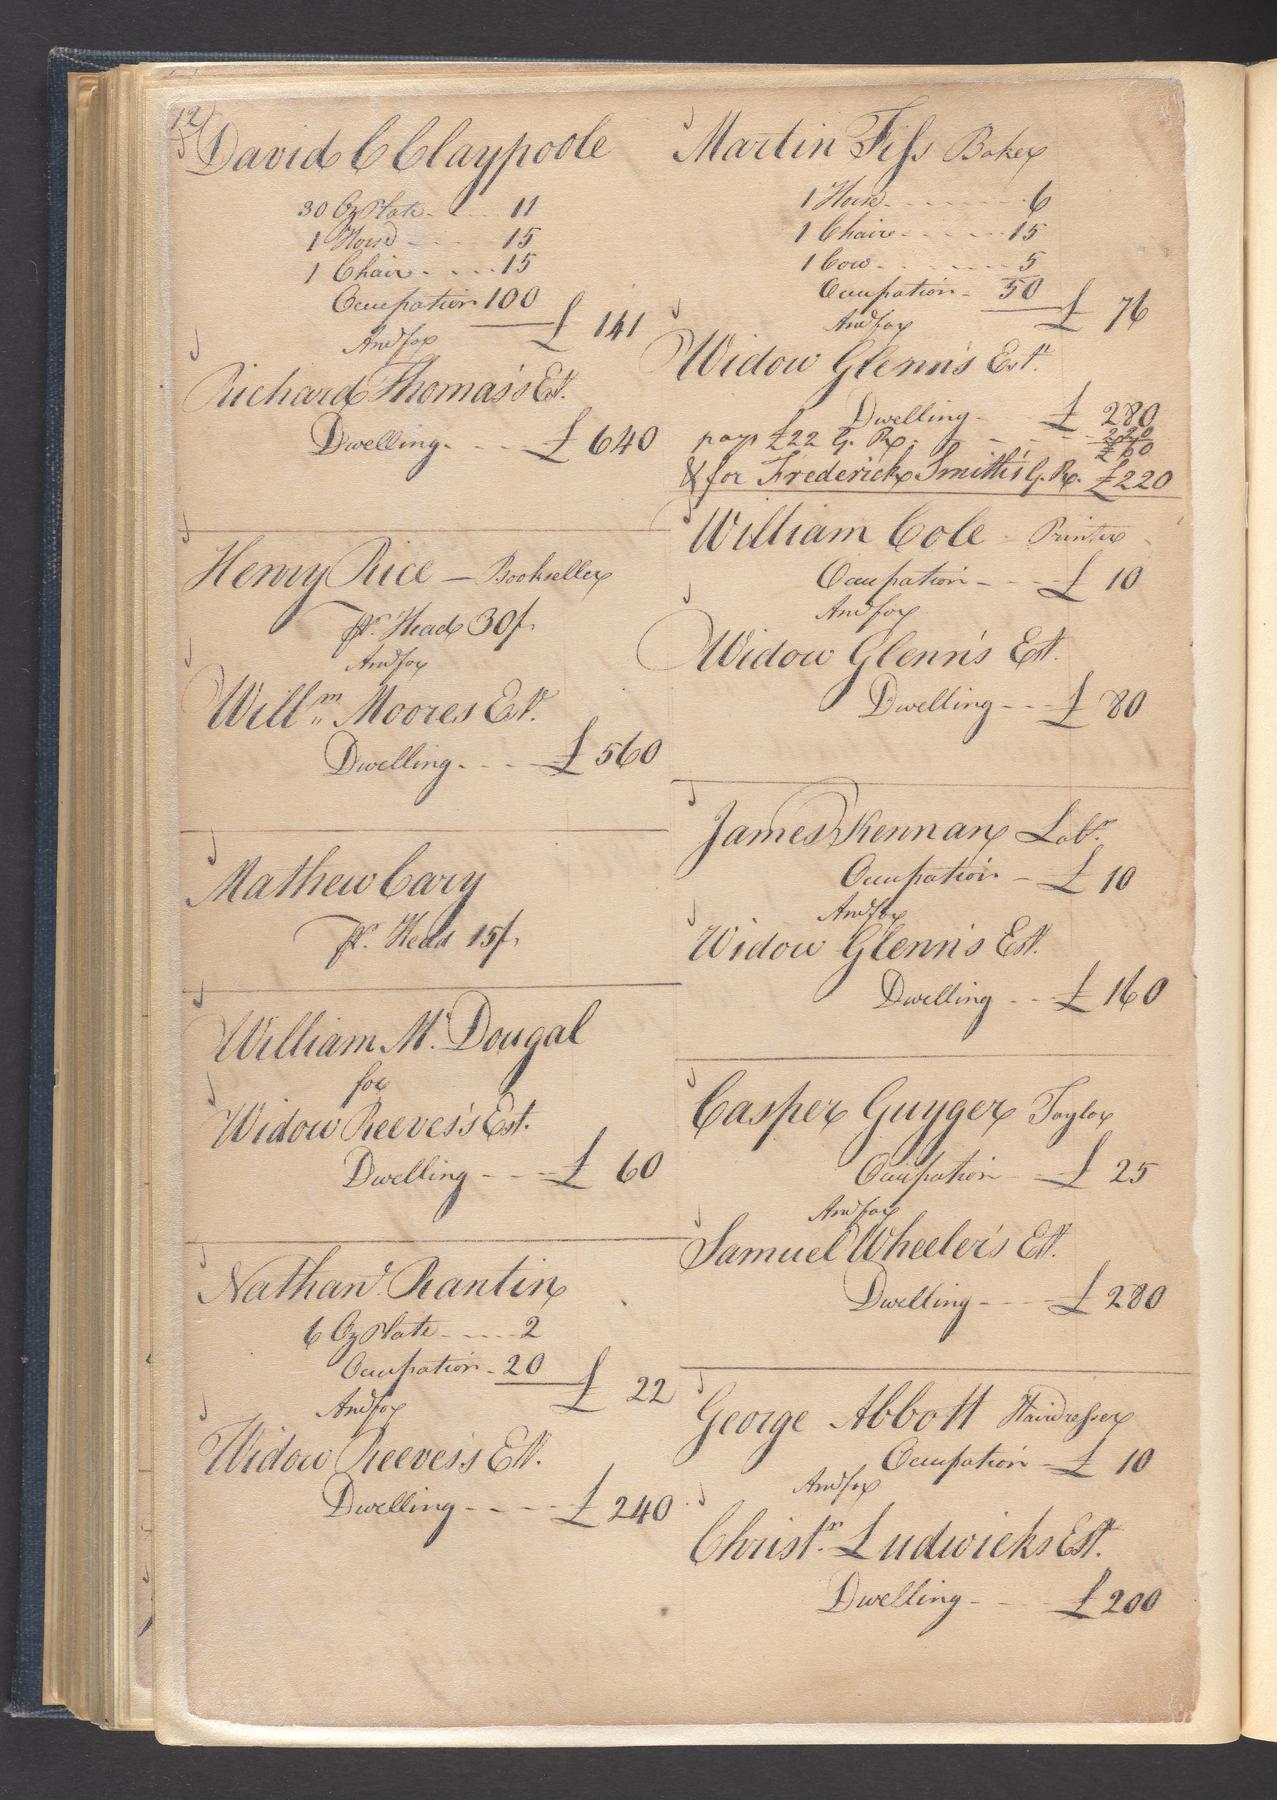 12
David C Claypoole
30 Oz Plate - - - 11
1 Horse - - - 15
1 Chair - - - 15
Occupation 100 £ 141
And for
Richard Thomas's Estt.
Dwelling - - - £ 640
Henry Rice — Bookseller
pr. Head 30/.
And for
Willm. Moores Estt.
Dwelling - - - £ 560
Mathew Cary
pr. Head 15/.
William Mc. Dougal
for
Widow Reeves's Est.
Dwelling - - - £ 60
Nathanl. Rantin
6 Oz Plate - - - 2
Occupation - 20 £ 22
And for
Widow Reeves's Estt.
Dwelling - - - - £ 240
Martin Fiss Baker
1 Horse - - - - 6
1 Chaire - - - - 15
1 Cow - - - - 5
Occupation - 50 £ 76
And for
Widow Glenn's Estt.
Dwelling - £ 280
pays £22 G. R. - - - 220
£ 60
& for Frederick Smith's G. R. £220
William Cole - Printer
Occupation - - - £ 10
And for
Widow Glenn's Est.
Dwelling - - - £ 80
James Kennan Labr.
Occupation - £ 10
And for
Widow Glenn's Estt.
Dwelling - - - £ 160
Casper Guyger Taylor
Occupation - £ 25
And for
Samuel Wheeler's Estt.
Dwelling - - - £ 280
George Abbott Hairdresser
Occupation - £ 10
And for
Christr. Ludwicks Estt.
Dwelling - - - £ 200